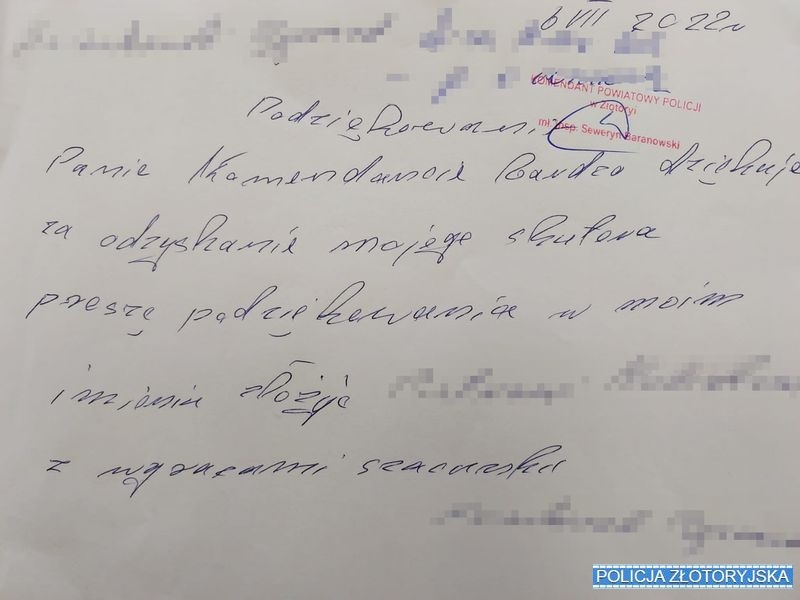 6 VII 2022r
KOMENDANT POWIATOWY POLICJI
w Złotoryi
mł. insp. Seweryn Baranowski
Podziękowani
Panie Komendancie bardzo dziękuje
za odzyskanie mojego skutera
proszę podziękowania w moim
imieniu złożyć
z wyrazami szacunku
POLICJA ZŁOTORYJSKA